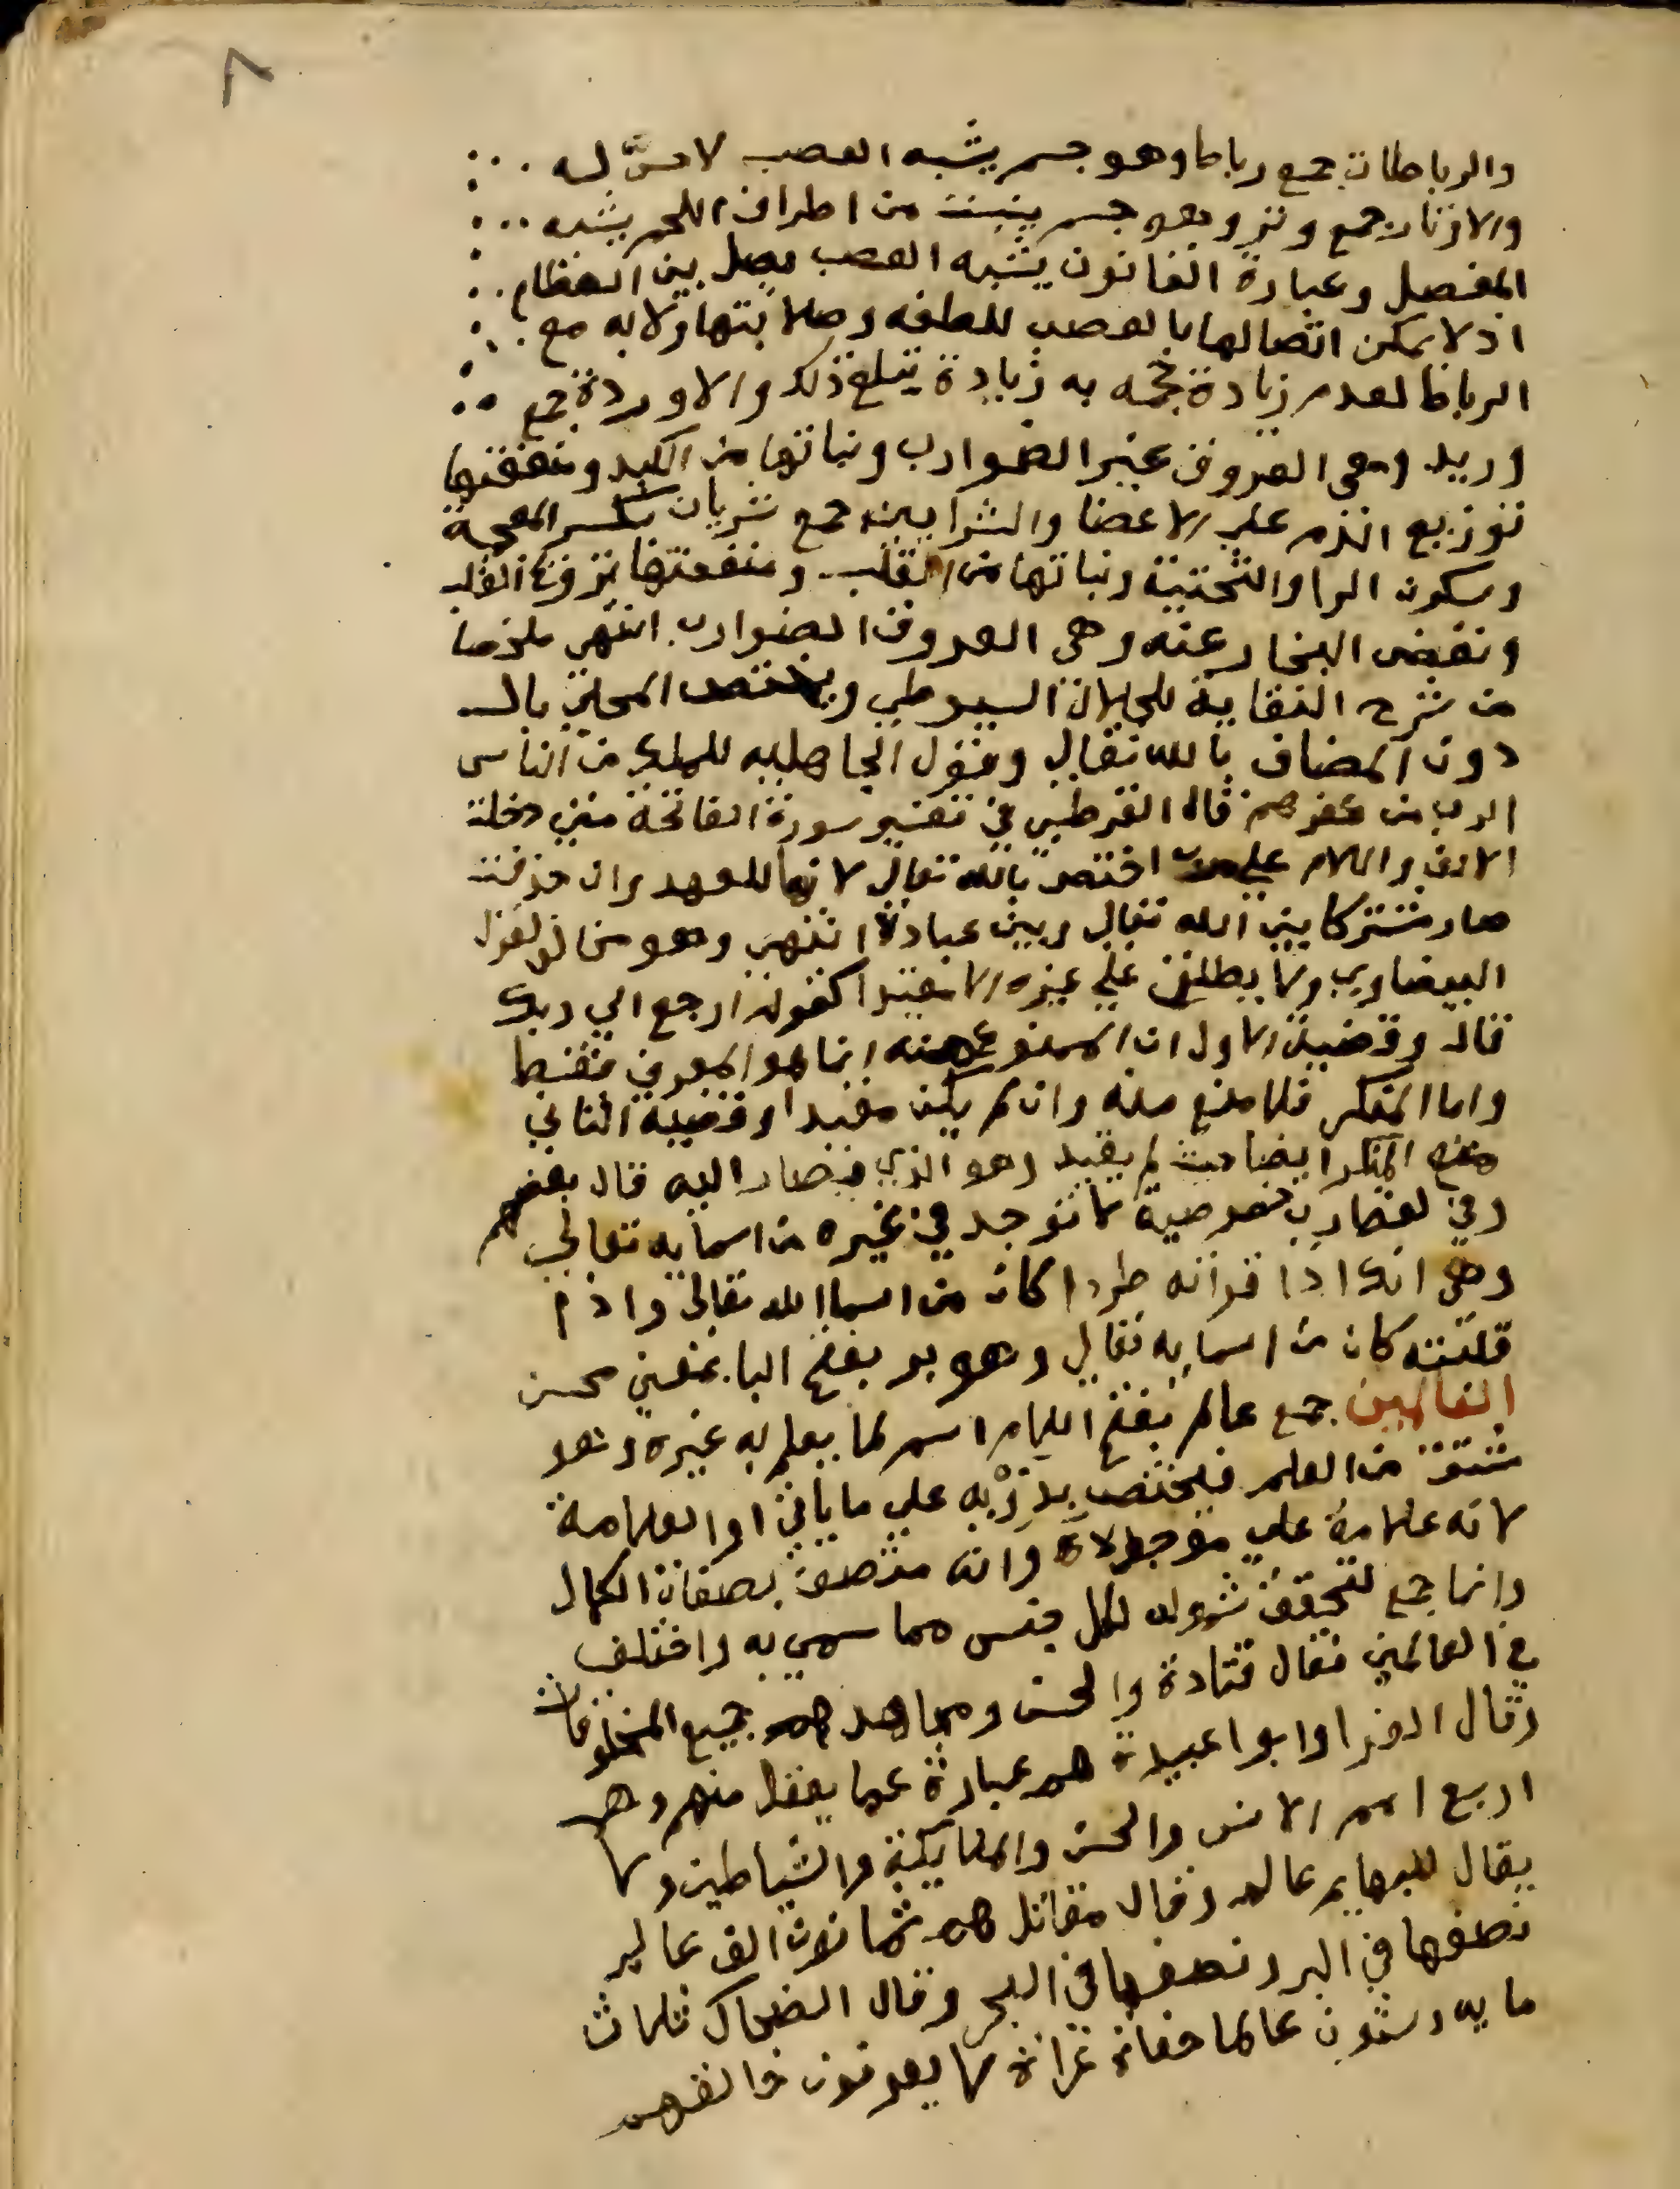 ٨
والرباطات جمع رباط وهو جسم يشبه العصب لا حسّ له
والاوتار جمع وتر وهو جسم ينبت من اطراف اللحم يشبه
المفصل وعبارة القانون يشبه العصب يصل بين العظام
اذ لا يمكن اتصالها بالعصب للطفه وصلابتها ولا به مع
الرباط لعدم زيادة حجمه به زيادة تبلغ ذلك والاوردة جمع
وريد وهي العروق غير الضوارب ونباتها من الكبد ومنفعتها
توزيع الدم على الاعضا والشرايين جمع شريان بكسر المعجمة
وسكون الرا والتحتية ونباتها من القلب ومنفعتها ترويح القلب
ونفض البخار عنه وهي العروق الضوارب انتهى ملخصا
من شرح النقاية للجلال السيوطي ويختص المحلى بال
دون المضاف بالله تعالى وقول الجاهلية للملك من الناس
الرب من كفرهم قال القرطبي في تفسير سورة الفاتحة متى دخلت
الالف واللام على رب اختص بالله تعالى لانها للعهد وان حذفت
صار مشتركا بين الله تعالى وبين عباده انتهى وهو مخالف لقول
البيضاوي ولا يطلق على غيره الا مقيدا كقوله ارجع الى ربك
قال وقضية الاول ان الممنوع منه انما هو المعرف فقط
واما المنكر فلا منع منه وان لم يكن مقيدا وقضية الثاني
منع المنكر ايضا حيث لم يقيد وهو الذي فصار اليه قال بعضهم
وفي لفظ رب خصوصية لا توجد في غيره من اسمايه تعالى
وهي انك اذا قراته طردا كان من اسما الله تعالى واذا
قلبته كان من اسمايه تعالى وهو بر بفتح البا بمعنى محسن
العالمين جمع عالم بفتح اللام اسم لما يعلم به غيره وهو
مشتق من العلم فيختص بذويه على ما ياتي او العلامة
لانه علامة على موجده وانه متصف بصفات الكمال
وانما جمع لتحقق شموله لكل جنس مما سمي به واختلف
في العالمين فقال قتادة والحسن ومجاهد هم جميع المخلوقات
وقال الفرا وابو اعبيدة هم عبارة عما يعقل منهم وهم
اربع امم الانس والجن والملايكة والشياطين ولا
يقال للبهايم عالم وقال مقاتل هم ثمانون الف عالم
نصفها في البر ونصفها في البحر وقال الضحاك ثلاث
مايه وستون عالما حفاة عراة لا يعرفون خالقهم